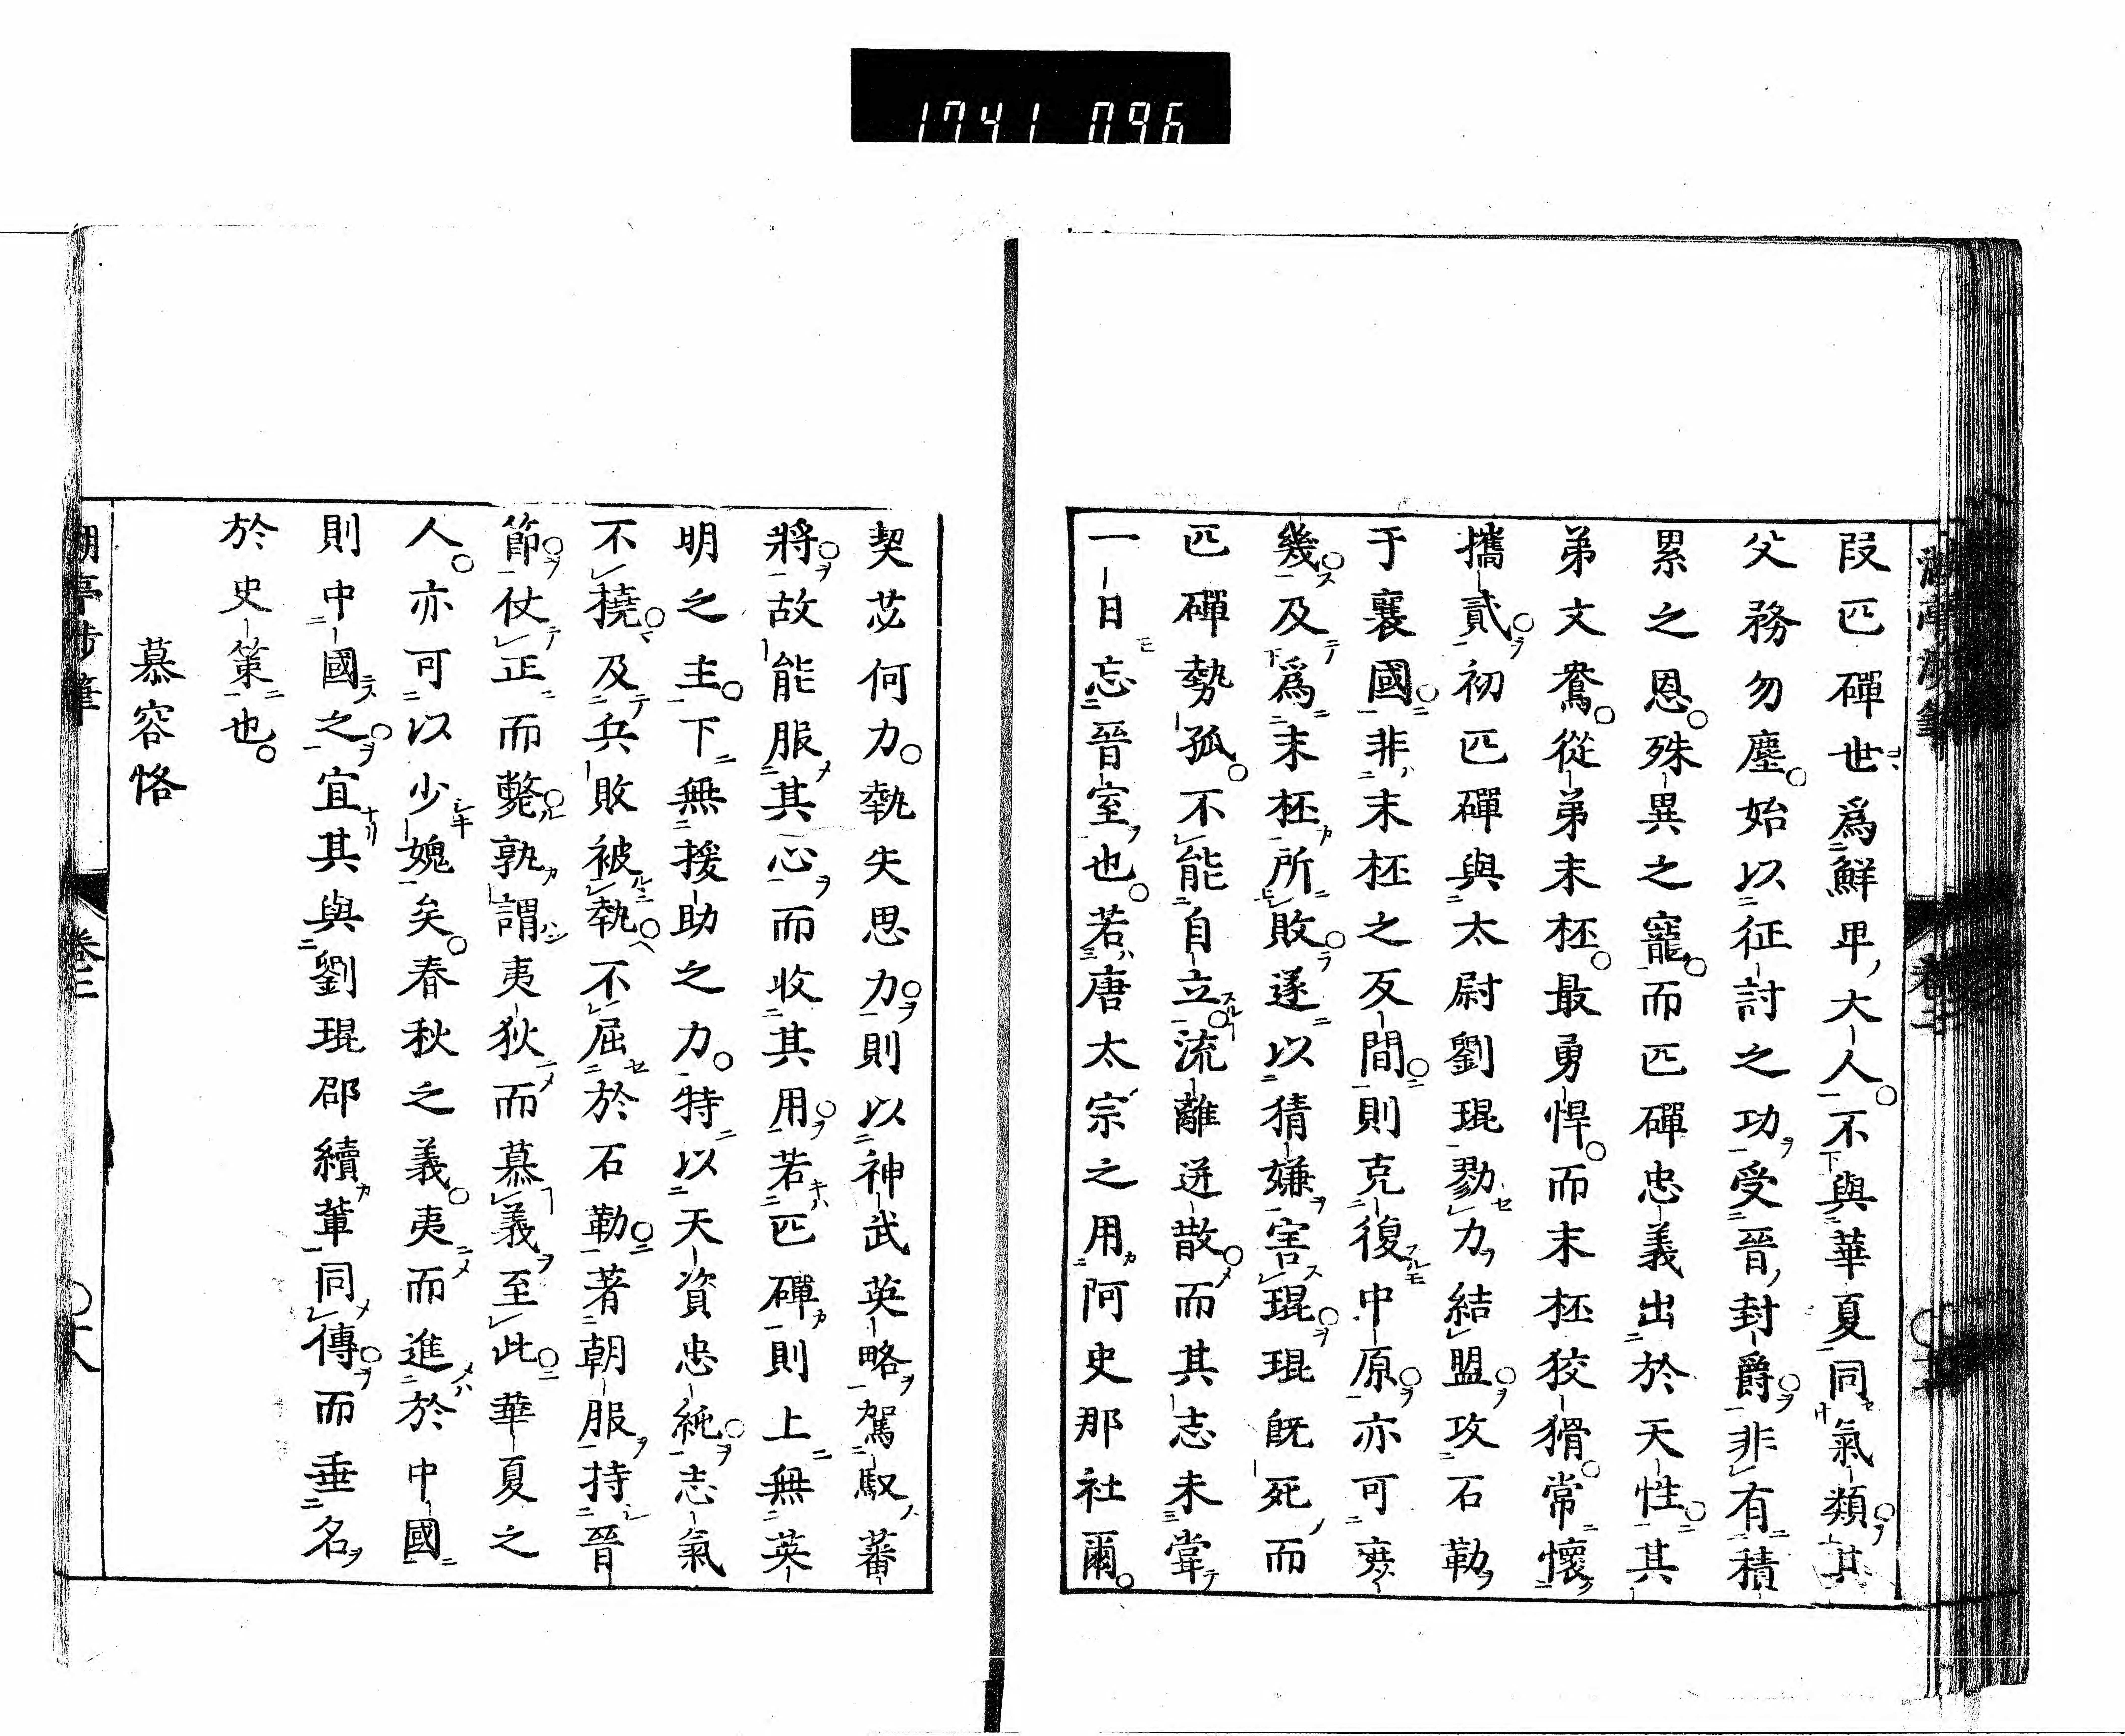 1741 096
段匹磾世爲鮮卑大人不與華夏同氣類其
父務勿塵始以征討之功受晉封爵非有積
累之恩殊異之寵而匹磾忠義出於天性其
弟文鴦從弟末柸最勇悍而末柸狡猾常懷
攜貳初匹磾與太尉劉琨勠力結盟攻石勒
于襄國非末柸之反間則克復中原亦可庶
幾及爲末柸所敗遂以猜嫌害琨琨既死而
匹磾勢孤不能自立流離迸散而其志未甞
一日忘晉室也若唐太宗之用阿史那社爾
契苾何力執失思力則以神武英略駕馭蕃
將故能服其心而收其用若匹磾則上無英
明之主下無援助之力特以天資忠純志氣
不撓及兵敗被執不屈於石勒著朝服持晉
節仗正而斃孰謂夷狄而慕義至此華夏之
人亦可以少媿矣春秋之義夷而進於中國
則中國之宜其與劉琨邵續輩同傳而垂名
於史策也
慕容恪
湖亭涉筆 卷二